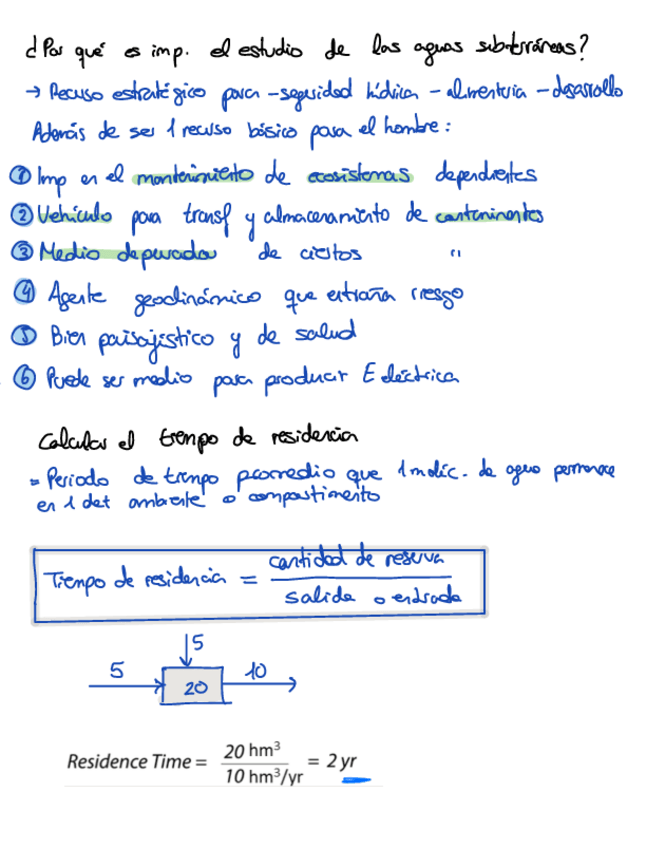 ¿Por qué es imp. el estudio de las aguas subterráneas?
→ Recurso estratégico para - seguridad hídrica - alimentaria - desarrollo
Además de ser 1 recurso básico para el hombre:
① Imp en el mantenimiento de ecosistemas dependientes
② Vehículo para transf y almacenamiento de contaminantes
③ Medio depurador de ciertos "
④ Agente geodinámico que entraña riesgo
⑤ Bien paisajístico y de salud
⑥ Puede ser medio para producir E eléctrica
Calcular el tiempo de residencia
= Periodo de tiempo promedio que 1 moléc. de agua permanece
en 1 det ambiente o compartimento
Tiempo de residencia = cantidad de reserva
salida o entrada
5
5 20 10
Residence Time = 20 hm³ / 10 hm³/yr = 2 yr